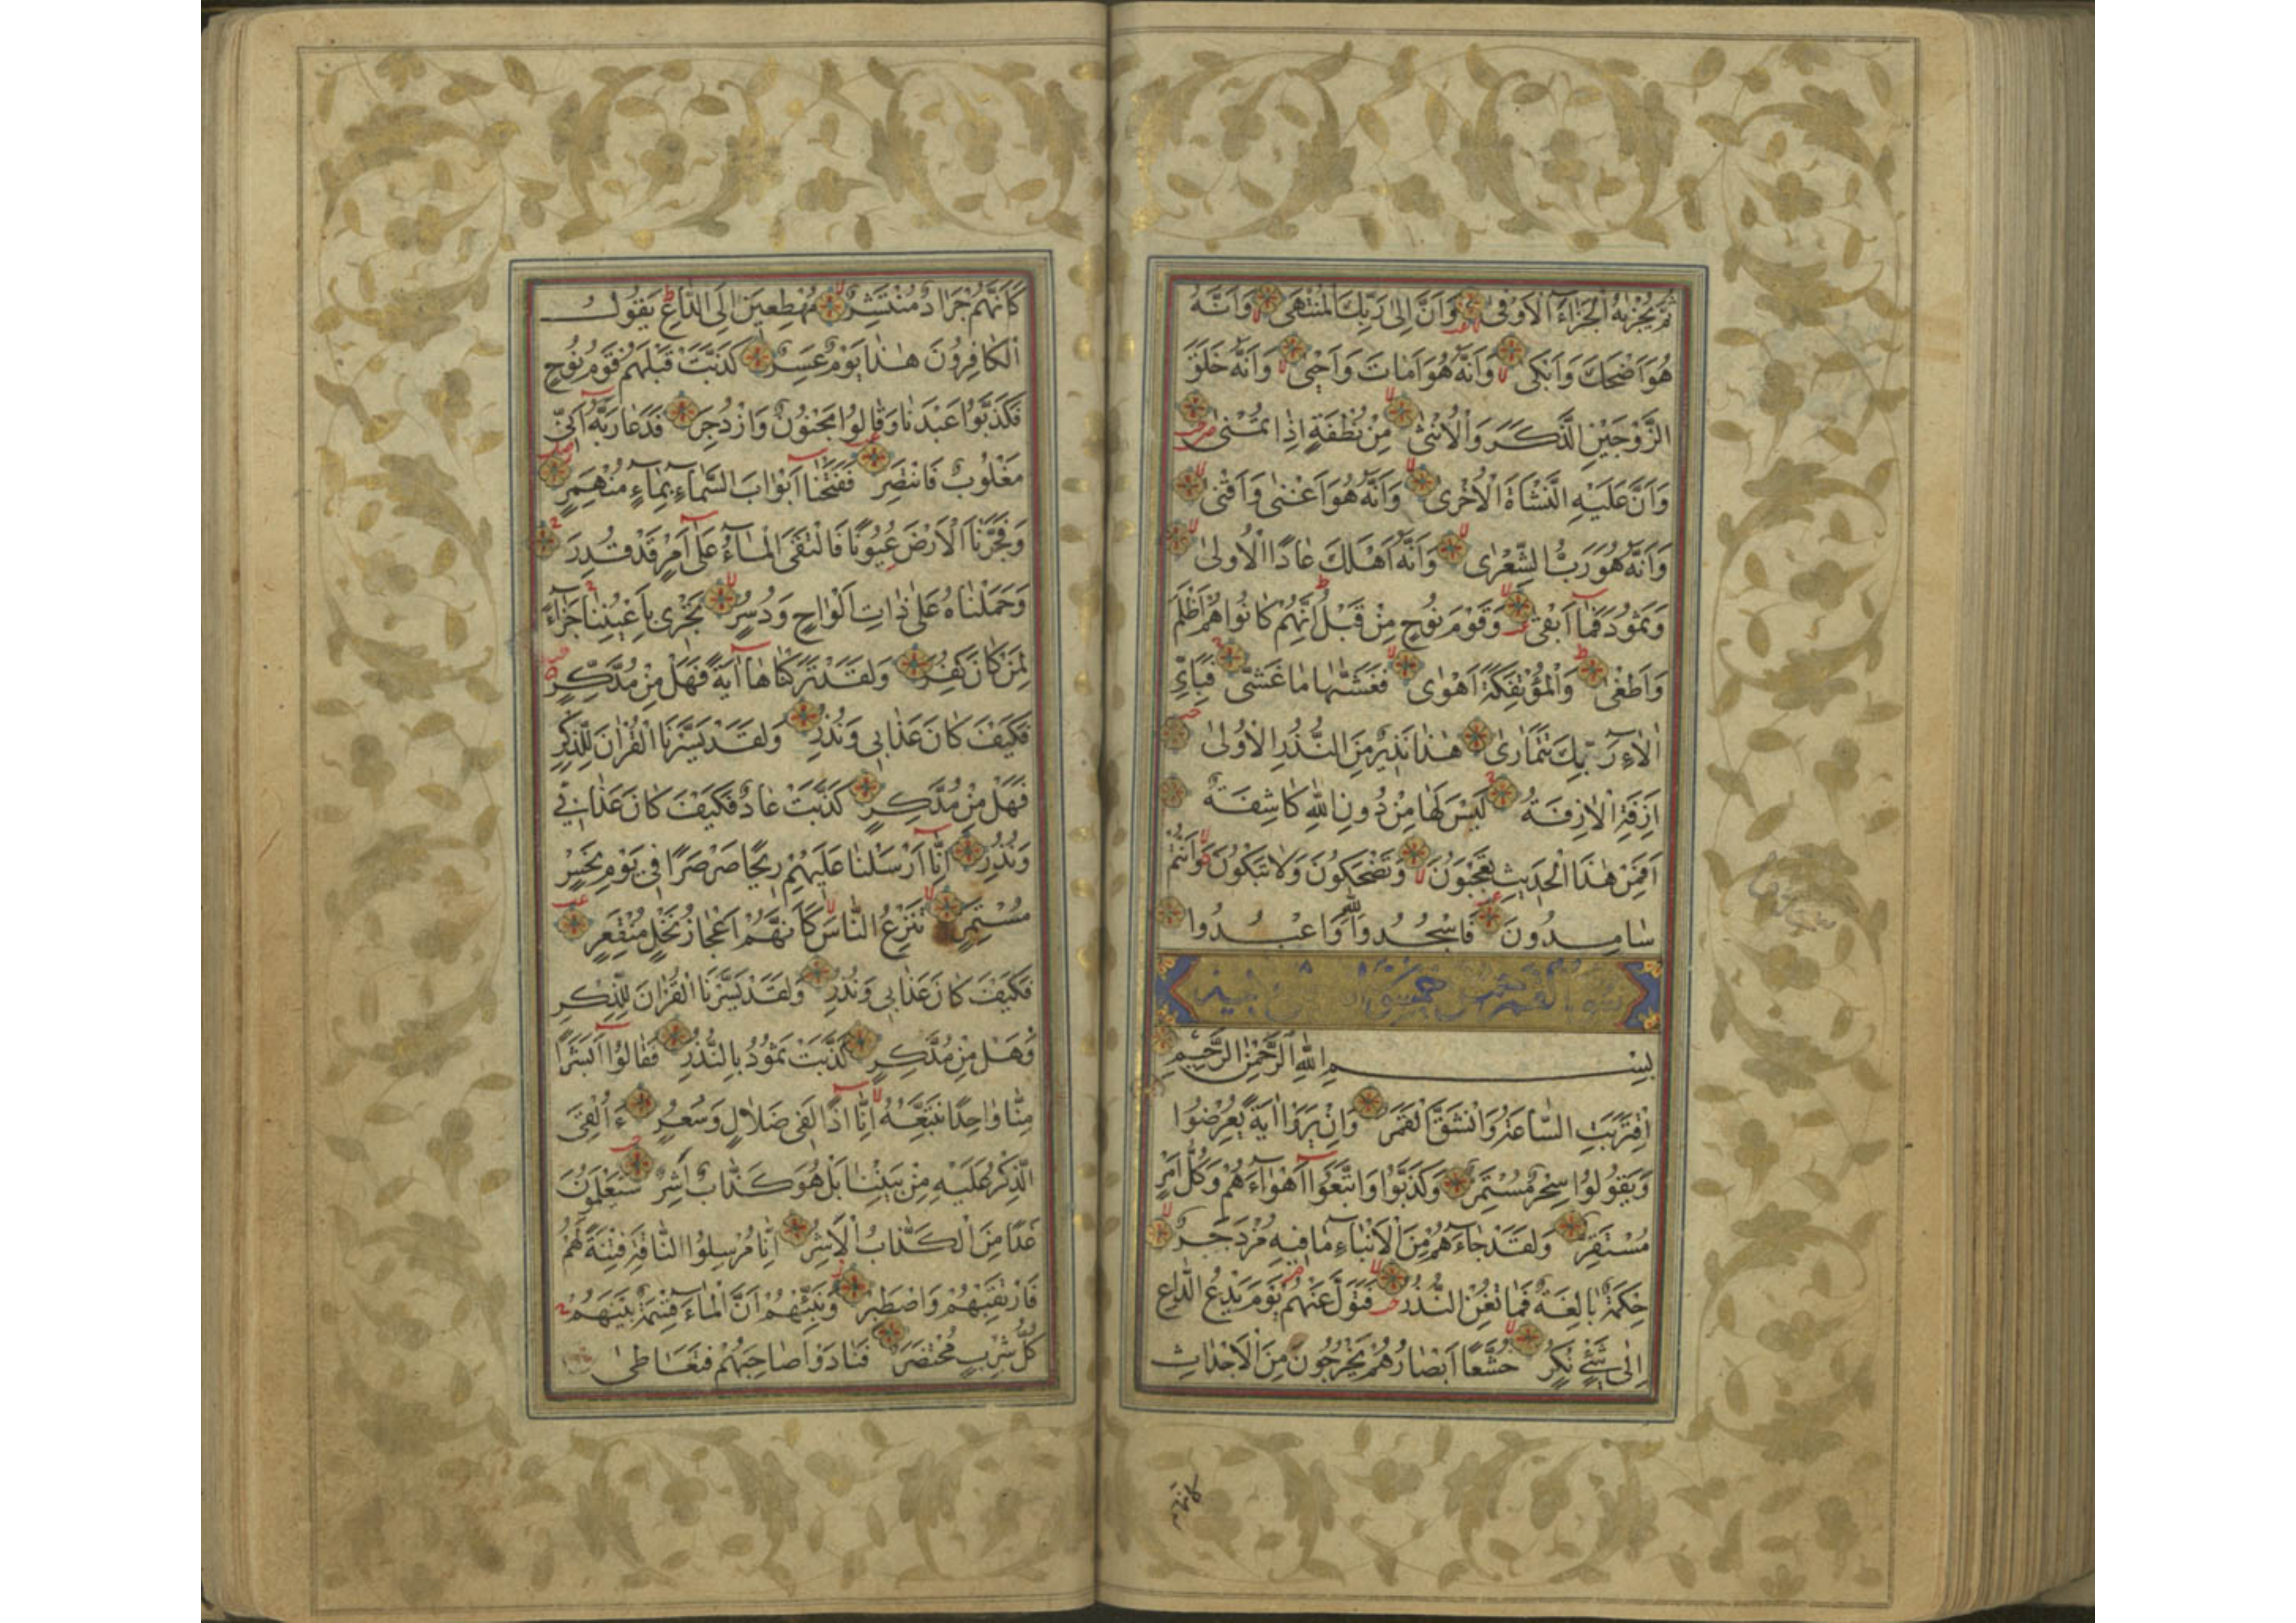 ثُمَّ يُجْزٰيهُ الْجَزَآءَ الْاَوْفٰى وَاَنَّ اِلٰى رَبِّكَ الْمُنْتَهٰى وَاَنَّهُ
هُوَ اَضْحَكَ وَاَبْكٰى وَاَنَّهُ هُوَ اَمَاتَ وَاَحْيٰى وَاَنَّهُ خَلَقَ
الزَّوْجَيْنِ الذَّكَرَ وَالْاُنْثٰى مِنْ نُطْفَةٍ اِذَا تُمْنٰى
وَاَنَّ عَلَيْهِ النَّشْاَةَ الْاُخْرٰى وَاَنَّهُ هُوَ اَغْنٰى وَاَقْنٰى
وَاَنَّهُ هُوَ رَبُّ الشِّعْرٰى وَاَنَّهُ اَهْلَكَ عَادًا الْاُولٰى
وَثَمُودَ فَمَآ اَبْقٰى وَقَوْمَ نُوحٍ مِنْ قَبْلُ اِنَّهُمْ كَانُوا هُمْ اَظْلَمَ
وَاَطْغٰى وَالْمُؤْتَفِكَةَ اَهْوٰى فَغَشّٰيهَا مَا غَشّٰى فَبِاَيِّ
اٰلَاءِ رَبِّكَ تَتَمَارٰى هٰذَا نَذِيرٌ مِنَ النُّذُرِ الْاُولٰى
اَزِفَتِ الْاٰزِفَةُ لَيْسَ لَهَا مِنْ دُونِ اللهِ كَاشِفَةٌ
اَفَمِنْ هٰذَا الْحَدِيثِ تَعْجَبُونَ وَتَضْحَكُونَ وَلَا تَبْكُونَ وَاَنْتُمْ
سَامِدُونَ فَاسْجُدُوا لِلّٰهِ وَاعْبُدُوا
بِسْمِ اللهِ الرَّحْمٰنِ الرَّحِيمِ
اِقْتَرَبَتِ السَّاعَةُ وَانْشَقَّ الْقَمَرُ وَاِنْ يَرَوْا اٰيَةً يُعْرِضُوا
وَيَقُولُوا سِحْرٌ مُسْتَمِرٌّ وَكَذَّبُوا وَاتَّبَعُوٓا اَهْوَآءَهُمْ وَكُلُّ اَمْرٍ
مُسْتَقِرٌّ وَلَقَدْ جَآءَهُمْ مِنَ الْاَنْبَآءِ مَا فِيهِ مُزْدَجَرٌ
حِكْمَةٌ بَالِغَةٌ فَمَا تُغْنِ النُّذُرُ فَتَوَلَّ عَنْهُمْ يَوْمَ يَدْعُ الدَّاعِ
اِلٰى شَيْءٍ نُكُرٍ خُشَّعًا اَبْصَارُهُمْ يَخْرُجُونَ مِنَ الْاَجْدَاثِ
كَاَنَّهُمْ
كَاَنَّهُمْ جَرَادٌ مُنْتَشِرٌ مُهْطِعِينَ اِلَى الدَّاعِ يَقُولُ
الْكَافِرُونَ هٰذَا يَوْمٌ عَسِرٌ كَذَّبَتْ قَبْلَهُمْ قَوْمُ نُوحٍ
فَكَذَّبُوا عَبْدَنَا وَقَالُوا مَجْنُونٌ وَازْدُجِرَ فَدَعَا رَبَّهُ اَنِّي
مَغْلُوبٌ فَانْتَصِرْ فَفَتَحْنَآ اَبْوَابَ السَّمَآءِ بِمَآءٍ مُنْهَمِرٍ
وَفَجَّرْنَا الْاَرْضَ عُيُونًا فَالْتَقَى الْمَآءُ عَلٰٓى اَمْرٍ قَدْ قُدِرَ
وَحَمَلْنَاهُ عَلٰى ذَاتِ اَلْوَاحٍ وَدُسُرٍ تَجْرِي بِاَعْيُنِنَا جَزَآءً
لِمَنْ كَانَ كُفِرَ وَلَقَدْ تَرَكْنَاهَآ اٰيَةً فَهَلْ مِنْ مُدَّكِرٍ
فَكَيْفَ كَانَ عَذَابِي وَنُذُرِ وَلَقَدْ يَسَّرْنَا الْقُرْاٰنَ لِلذِّكْرِ
فَهَلْ مِنْ مُدَّكِرٍ كَذَّبَتْ عَادٌ فَكَيْفَ كَانَ عَذَابِي
وَنُذُرِ اِنَّآ اَرْسَلْنَا عَلَيْهِمْ رِيحًا صَرْصَرًا فِي يَوْمِ نَحْسٍ
مُسْتَمِرٍّ تَنْزِعُ النَّاسَ كَاَنَّهُمْ اَعْجَازُ نَخْلٍ مُنْقَعِرٍ
فَكَيْفَ كَانَ عَذَابِي وَنُذُرِ وَلَقَدْ يَسَّرْنَا الْقُرْاٰنَ لِلذِّكْرِ
فَهَلْ مِنْ مُدَّكِرٍ كَذَّبَتْ ثَمُودُ بِالنُّذُرِ فَقَالُوٓا اَبَشَرًا
مِنَّا وَاحِدًا نَتَّبِعُهُ اِنَّآ اِذًا لَفِي ضَلَالٍ وَسُعُرٍ ءَاُلْقِيَ
الذِّكْرُ عَلَيْهِ مِنْ بَيْنِنَا بَلْ هُوَ كَذَّابٌ اَشِرٌ سَيَعْلَمُونَ
غَدًا مَنِ الْكَذَّابُ الْاَشِرُ اِنَّا مُرْسِلُوا النَّاقَةِ فِتْنَةً لَهُمْ
فَارْتَقِبْهُمْ وَاصْطَبِرْ وَنَبِّئْهُمْ اَنَّ الْمَآءَ قِسْمَةٌ بَيْنَهُمْ
كُلُّ شِرْبٍ مُحْتَضَرٌ فَنَادَوْا صَاحِبَهُمْ فَتَعَاطٰى